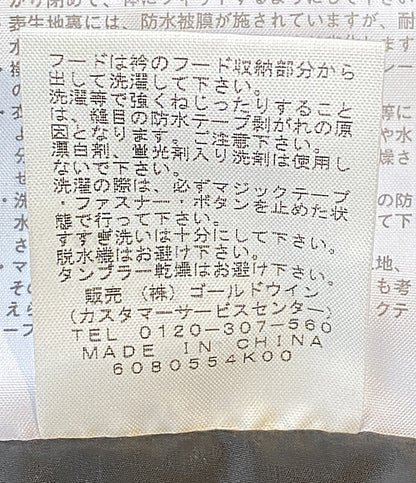 表生地裏には、防水被膜が施されていますが、耐
フードは衿のフード収納部分から
出して洗濯して下さい。
洗濯等で強くねじったりすること
は、縫目の防水テープ剥がれの原
因となります。ご注意下さい。
漂白剤、蛍光剤入り洗剤は使用し
ないで下さい。
洗濯の際は、必ずマジックテープ
・ファスナー・ボタンを止めた状
態で行って下さい。
すすぎ洗いは十分にして下さい。
脱水機はお避け下さい。
タンブラー乾燥はお避け下さい。
販売 (株) ゴールドウイン
(カスタマーサービスセンター)
TEL 0120-307-560
MADE IN CHINA
6080554K00